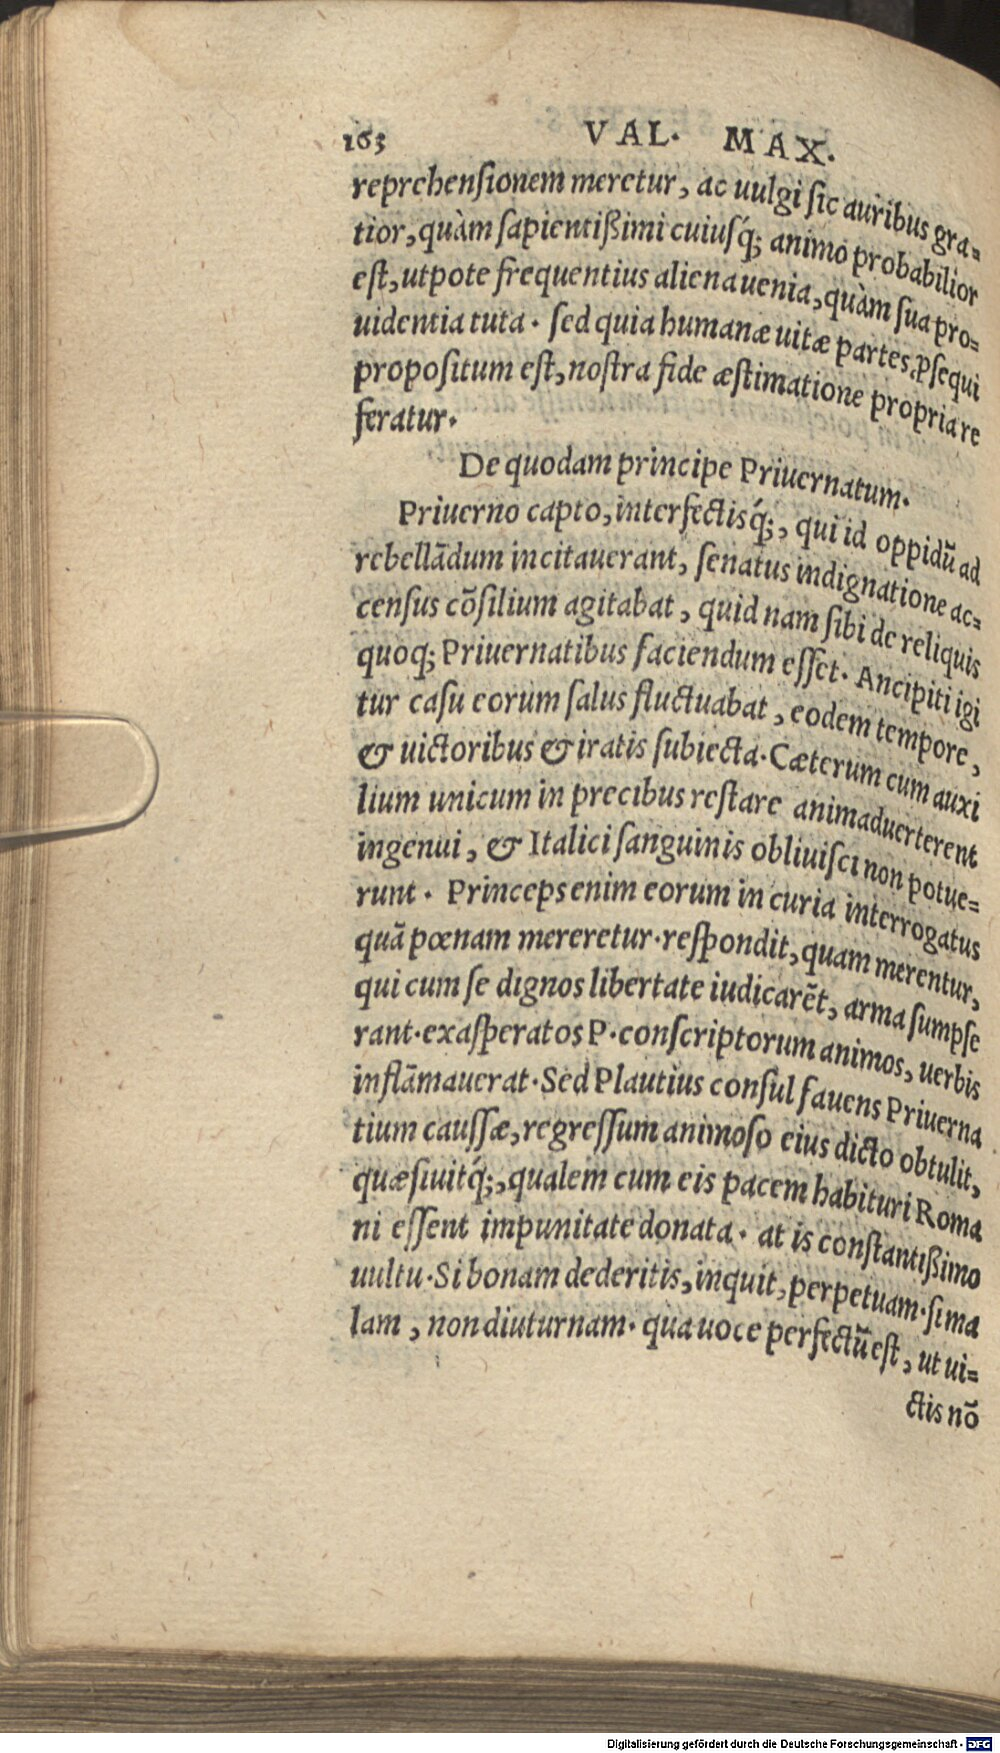 163 VAL. MAX.
reprehensionem meretur, ac uulgi sic auribus gra-
tior, quàm sapientißimi cuiusq́; animo probabilior
est, utpote frequentius aliena uenia, quàm sua pro-
uidentia tuta. sed quia humanæ uitæ partes ꝑsequi
propositum est, nostra fide æstimatione propria re
feratur.
De quodam principe Priuernatum.
Priuerno capto, interfectisq́;, qui id oppidũ ad
rebellãdum incitauerant, senatus indignatione ac-
census cõsilium agitabat, quid nam sibi de reliquis
quoq; Priuernatibus faciendum esset. Ancipiti igi
tur casu eorum salus fluctuabat, eodem tempore,
& uictoribus & iratis subiecta. Cæterum cum auxi
lium unicum in precibus restare animaduerterent
ingenui, & Italici sanguinis obliuisci non potue-
runt. Princeps enim eorum in curia interrogatus
quã pœnam mereretur. respondit, quam merentur,
qui cum se dignos libertate iudicarẽt, arma sumpse
rant. exasperatos P. conscriptorum animos, uerbis
inflãmauerat. Sed Plautius consul fauens Priuerna
tium caussæ, regressum animoso eius dicto obtulit,
quæsiuitq́;, qualem cum eis pacem habituri Roma
ni essent impunitate donata. at is constantißimo
uultu. Si bonam dederitis, inquit, perpetuam. si ma
lam, non diuturnam. qua uoce perfectũ est, ut ui-
ctis nõ
Digitalisierung gefördert durch die Deutsche Forschungsgemeinschaft - DFG